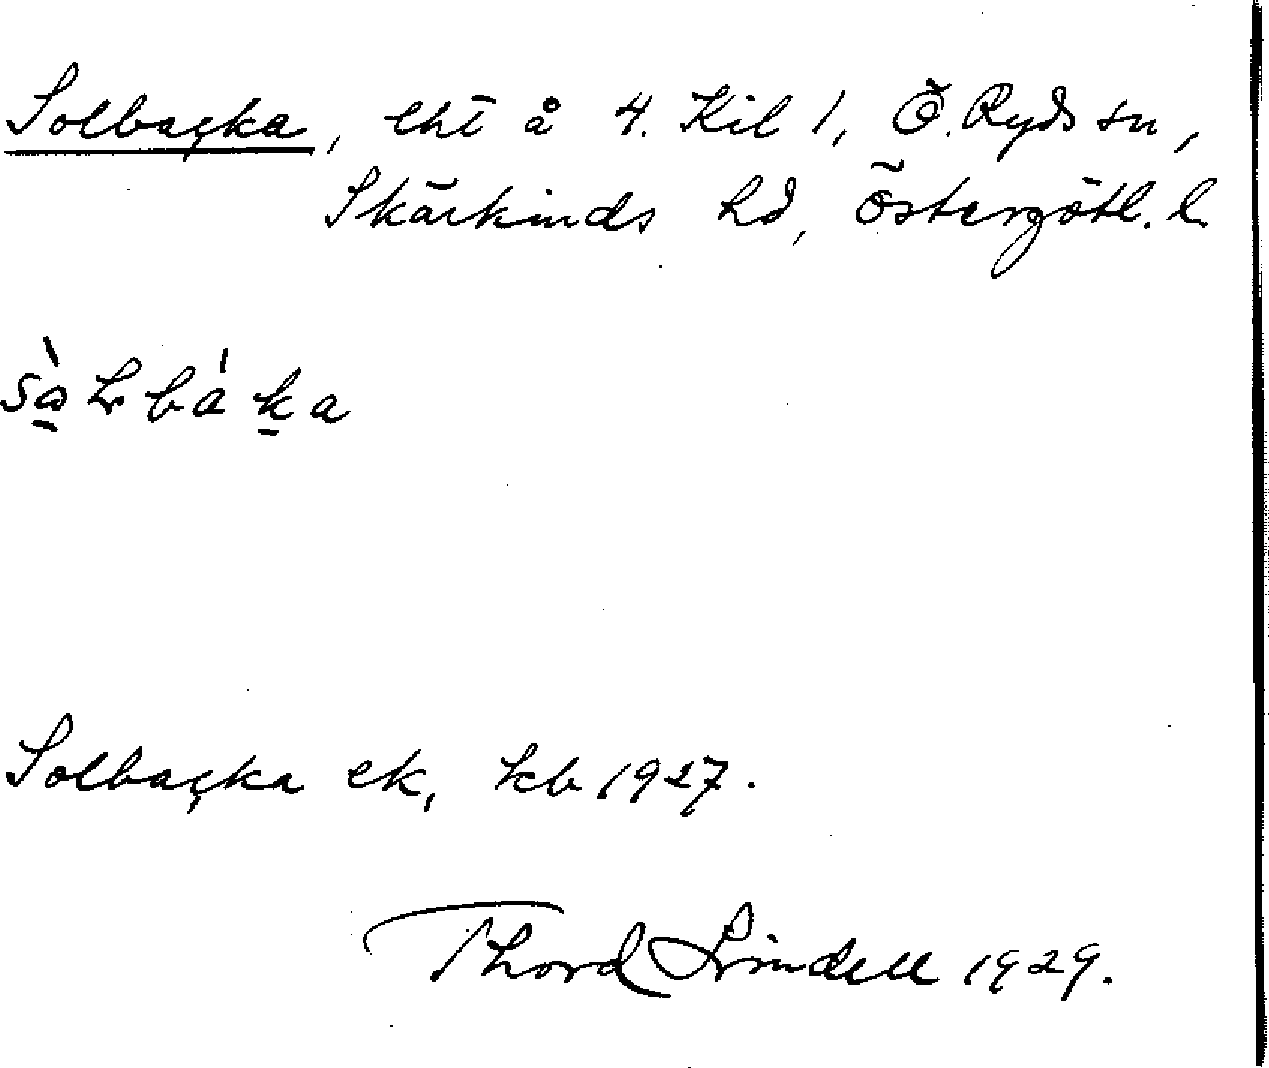 Solbaçka, lht å 4. Kil 1, Ö. Ryds sn,
Skärkinds hd, Östergötl. l.
Solbaçka ek, kb 1927.
Thord Lindell 1929.